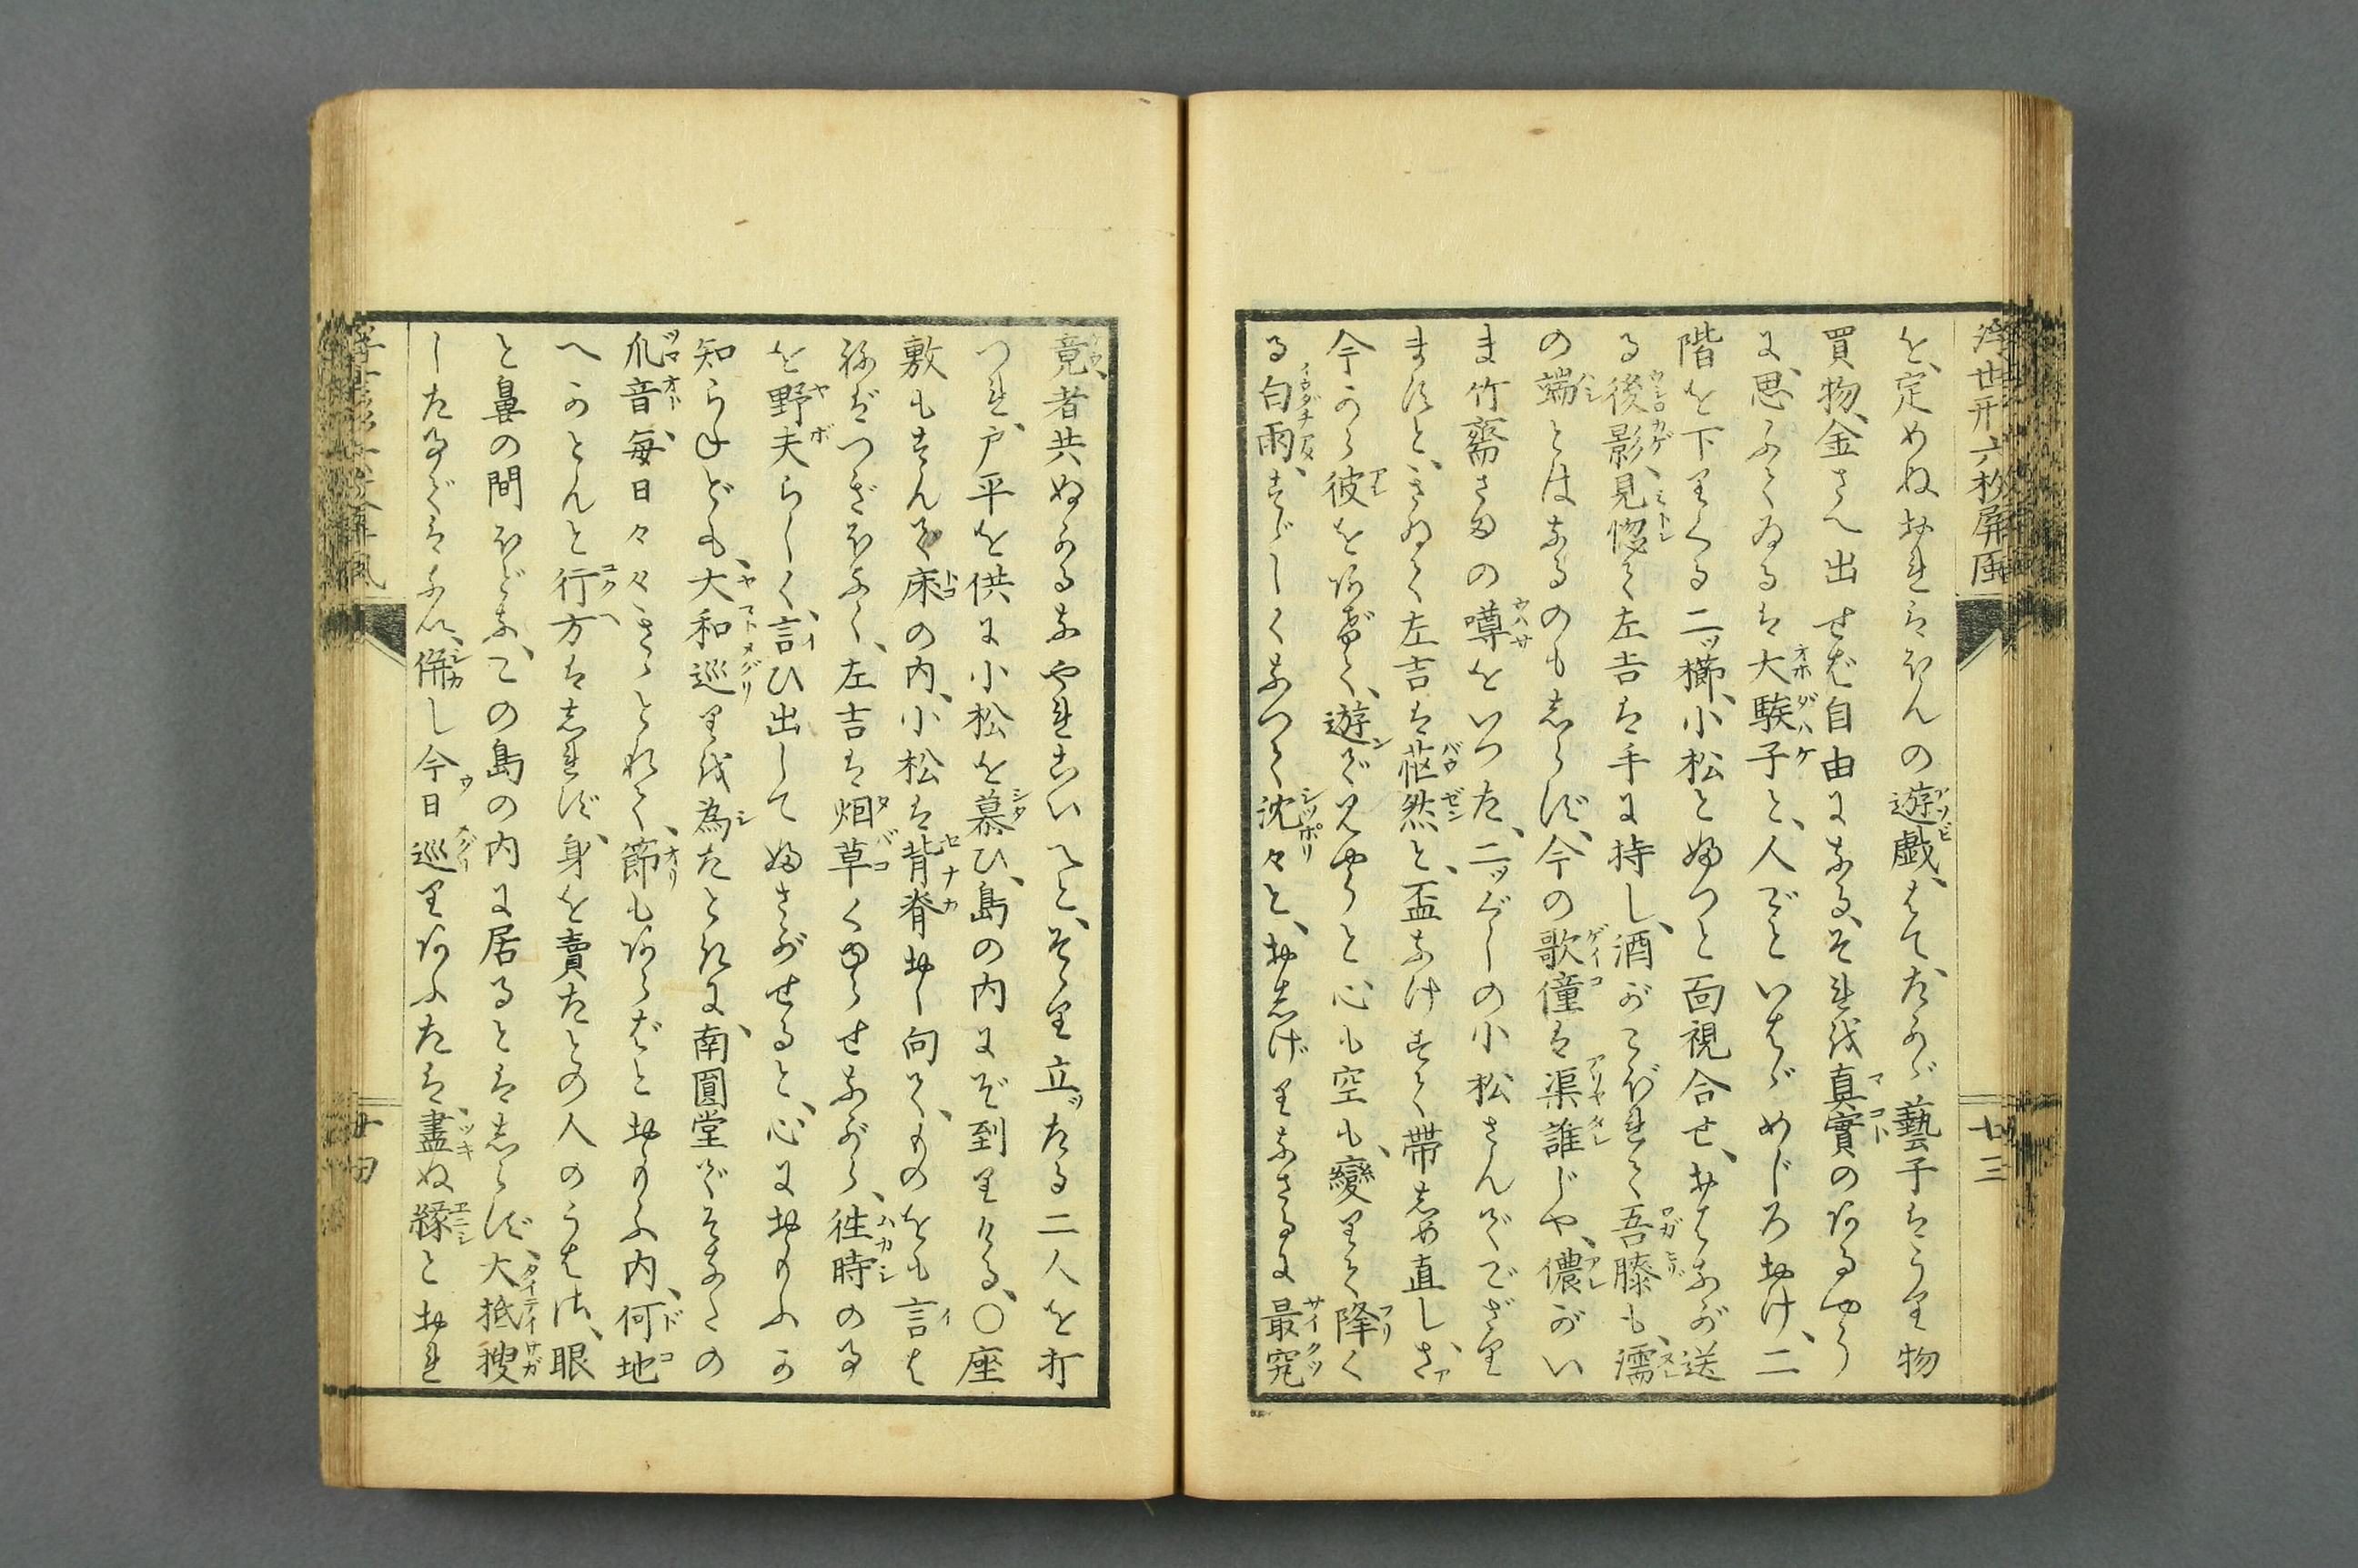 浮世形六枚屏風
廿三
を、定めぬおれらほんの遊戯、さて、たゞ藝子はうり物
買物、金さへ出せば自由になる、それを真實のあるやう
に、思ふてゐるは大騃子と、人ごといはゞめじろおけ、二
階を下りくる二ッ櫛、小松とふつと面視合せ、おはなが送
る後影、見惚て左吉は手に持し、酒がこぼれて吾膝も、濡
の端とはなるのもしらず、今の歌僮は渠誰じや、儂がい
ま竹齋さまの噂をいつた、二ッぐしの小松さんでござり
ますと、きゐて左吉は茫然と、盃なげすて帯しめ直し、さ
今から彼をあげて、遊で見やうと心も空も、變りて降く
る白雨、すゞしくなつて沈々と、おしげりなさるに最究
竟、者共ぬかるなやれこいへと、そゝり立ッたる二人を打
つれ、戸平を供に小松を慕ひ、島の内にぞ到りける、〇座
敷もすんで床の内、小松は背脊おし向て、ものをも言は
ねばつぎほなく、左吉は烟草くゆらせながら、徃時の事
を野夫らしく、言ひ出してふさがせると、心におもふか
知らねども、大和巡りを為たときに、南圓堂でそなたの
爪音、毎日々々きゝとれて、節もあらばとおもふ内、何地
へかとんと行方はしれず、身を賣たとの人のうはさ、眼
と鼻の間ほどな、この島の内に居るとはしらず、大抵捜
した事ではない、併し今日巡りあふたは、盡ぬ縁とおれ
廿四